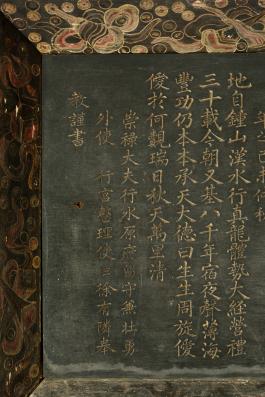 地自鍾山漢水行真龍體勢大經營禮
三十載今朝又基八千年宿夜聲薄海
豐功仍本承天大德曰生生周旋優
優於何觀瑞日秋天萬里清
崇祿大夫行水原府留守兼壯勇
外使 行宮整理使臣徐有隣奉
教謹書